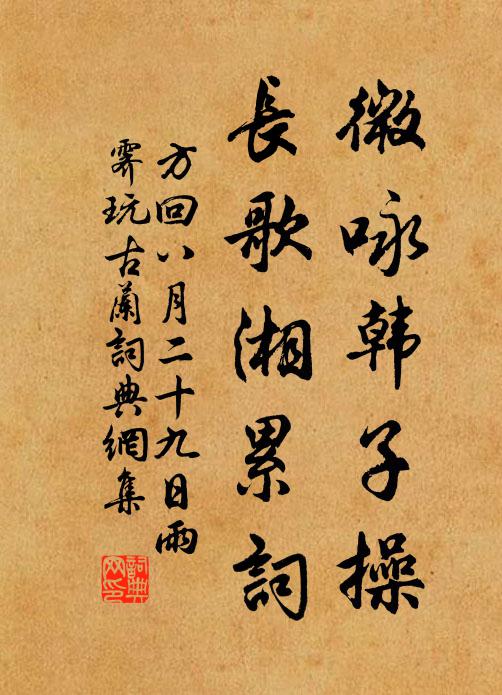 微咏韩子操
長歌湘累詞
方回八月二十九日雨
霁玩古蘭詞典網集
詞典
网印